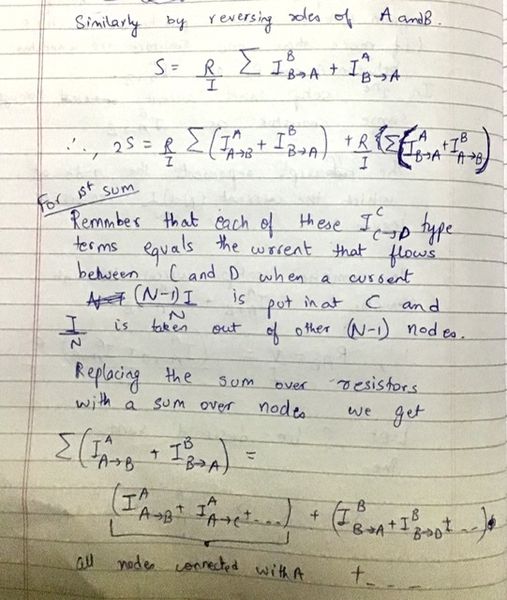 Similarly by reversing roles of A and B.
S = R/I Σ I^B_{B→A} + I^A_{B→A}
∴, 2S = R/I Σ (I^A_{A→B} + I^B_{B→A}) + R/I {Σ(I^A_{B→A} + I^B_{A→B})
For 1st sum
Remmber that each of these I^C_{C→D} type
terms equals the current that flows
between C and D when a current
(N-1)I/N is put in at C and
I/N is taken out of other (N-1) nodes.
Replacing the sum over resistors
with a sum over nodes we get
Σ(I^A_{A→B} + I^B_{B→A}) =
(I^A_{A→B} + I^A_{A→C} + ....) + (I^B_{B→A} + I^B_{B→D} + ...)
all nodes connected with A + ....